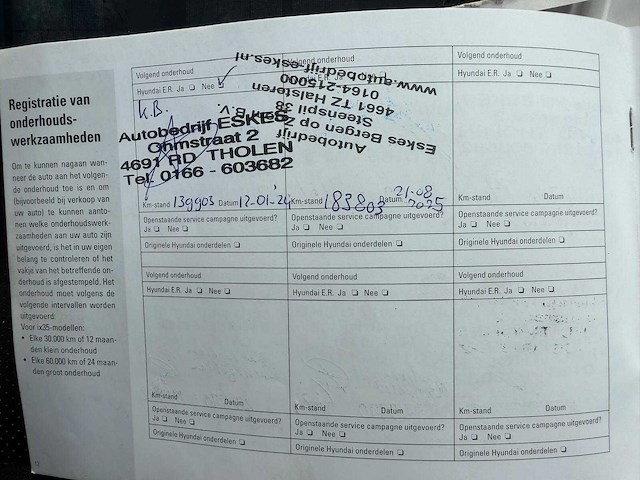 Registratie van
onderhouds-
werkzaamheden
Om te kunnen nagaan wan-
neer de auto aan het volgen-
de onderhoud toe is en om
(bijvoorbeeld bij verkoop van
uw auto) te kunnen aanto-
nen welke onderhoudswerk-
zaamheden aan uw auto zijn
uitgevoerd, is het in uw eigen
belang te controleren of het
vakje van het betreffende on-
derhoud is afgestempeld. Het
onderhoud moet volgens de
volgende intervallen worden
uitgevoerd:
Voor ix35-modellen:
• Elke 30.000 km of 12 maan-
den klein onderhoud
• Elke 60.000 km of 24 maan-
den groot onderhoud
Volgend onderhoud
Hyundai E.R. Ja ❏ Nee ❏ ✓
K.B.
Autobedrijf ESKES
Onmstraat 2
4691 RD THOLEN
Tel. 0166 - 603682
Km-stand 139903 Datum 12-01-'24
Openstaande service campagne uitgevoerd?
Ja ❏ Nee ❏
Originele Hyundai onderdelen ❏
onderhoud
Autobedrijf
Eskes Bergen op Zoom B.V.
Steenspil 38
4661 TZ Halsteren
0164-215000
www.autobedrijf-eskes.nl
Km-stand 183808 Datum 21-08-2025
Openstaande service campagne uitgevoerd?
Ja ❏ Nee ❏
Originele Hyundai onderdelen ❏
Volgend onderhoud
Hyundai E.R. Ja ❏ Nee ❏
Km-stand Datum
Openstaande service campagne uitgevoerd?
Ja ❏ Nee ❏
Originele Hyundai onderdelen ❏
Volgend onderhoud
Hyundai E.R. Ja ❏ Nee ❏
Km-stand Datum
Openstaande service campagne uitgevoerd?
Ja ❏ Nee ❏
Originele Hyundai onderdelen ❏
Volgend onderhoud
Hyundai E.R. Ja ❏ Nee ❏
Km-stand Datum
Openstaande service campagne uitgevoerd?
Ja ❏ Nee ❏
Originele Hyundai onderdelen ❏
Volgend onderhoud
Hyundai E.R. Ja ❏ Nee ❏
Km-stand Datum
Openstaande service campagne uitgevoerd?
Ja ❏ Nee ❏
Originele Hyundai onderdelen ❏